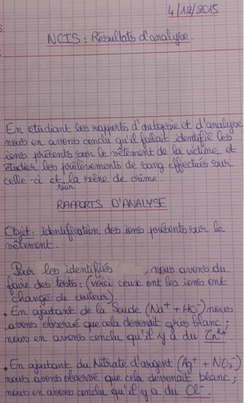 4/12/2015
NCIS : Résultats d'analyse
En étudiant les rapports d'autopsie et d'analyse
nous en avons conclu qu'il fallait identifié les
ions présents sur le vêtement de la victime et
étudier les prélèvements de sang effectués sur
celle-ci et la scène de crime.
sur
RAPPORTS D'ANALYSE
Objet : identification des ions présents sur le
vêtement.
Pour les identifiés, nous avons du
faire des tests : (voici ceux ont les ions ont
changé de couleur)
• En ajoutant de la Soude (Na+ + HO-) nous
avons observé que cela devenait gris blanc ;
nous en avons conclu qu'il y a du Zn2+
• En ajoutant du Nitrate d'argent (Ag+ + NO3-)
nous avons observé que cela devenait blanc ;
nous en avons conclu qu'il y a du Cl-